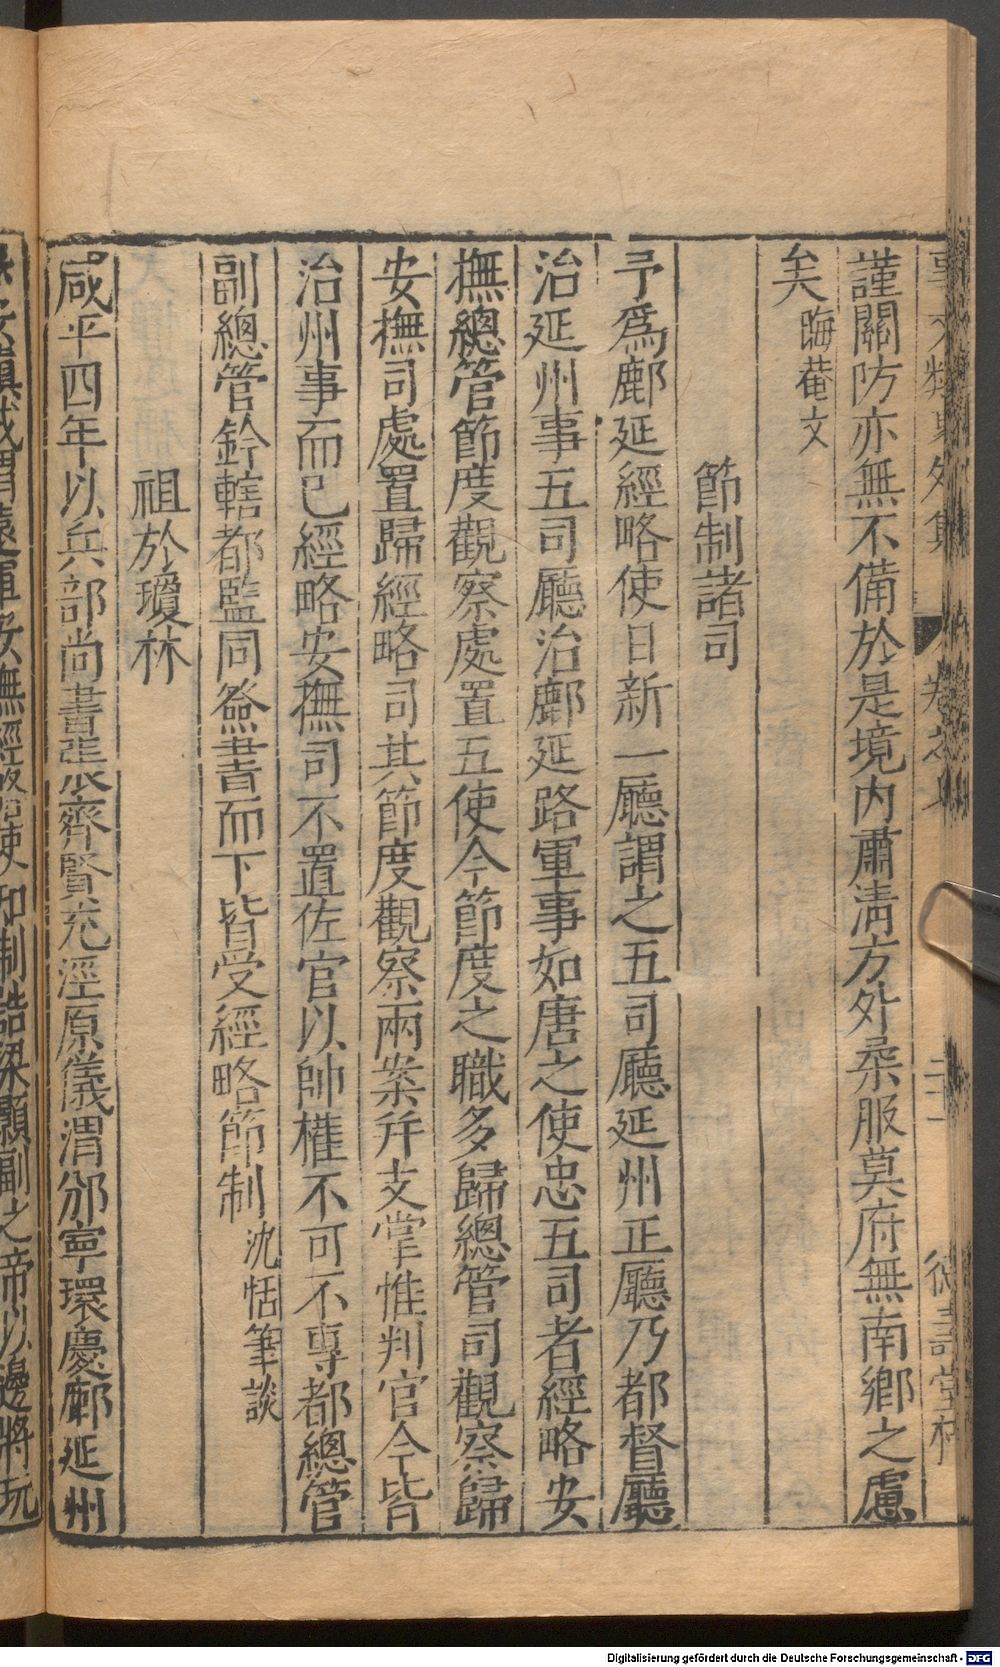 謹關防亦無不備於是境內肅清方外柔服莫府無南鄉之慮
矣晦菴文
節制諸司
予爲鄜延經略使日新一廳謂之五司廳延州正廳乃都督廳
治延州事五司廳治鄜延路軍事如唐之使忠五司者經略安
撫總管節度觀察處置五使今節度之職多歸總管司觀察歸
安撫司處置歸經略司其節度觀察兩案并支掌惟判官今皆
治州事而已經略安撫司不置佐官以帥權不可不專都總管
副總管鈐轄都監同簽書而下皆受經略節制沈恬筆談
祖於瓊林
咸平四年以兵部尚書張齊賢充涇原儀渭邠寧環慶鄜延州
安撫經略使知制誥梁顥副之帝以邊將玩
Digitalisierung gefördert durch die Deutsche Forschungsgemeinschaft - DFG